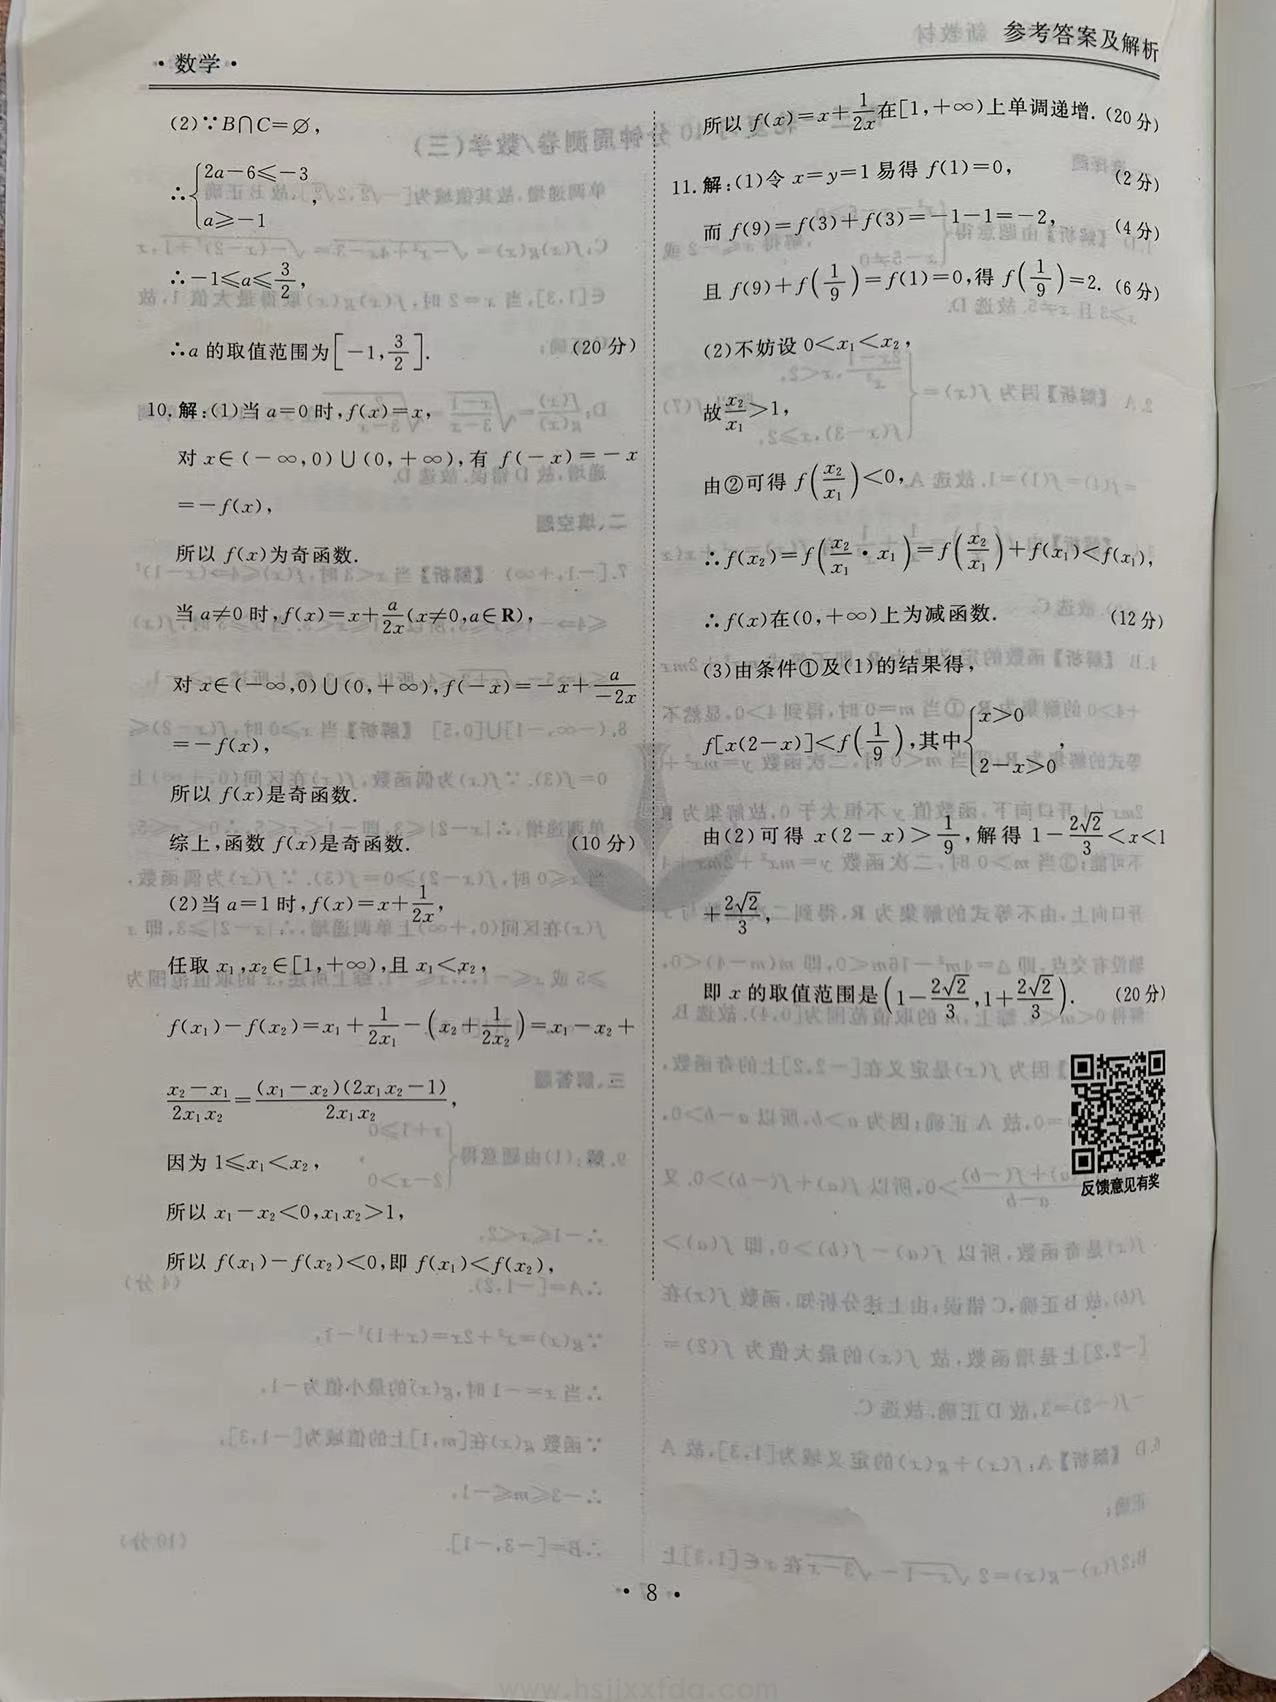 ·数学·
参考答案及解析
(2)∵B∩C=∅,
∴{2a-6≤-3
a≥-1,
∴-1≤a≤3/2,
∴a的取值范围为[-1,3/2]. (20分)
10.解:(1)当a=0时,f(x)=x,
对x∈(-∞,0)∪(0,+∞),有f(-x)=-x
=-f(x),
所以f(x)为奇函数.
当a≠0时,f(x)=x+a/2x(x≠0,a∈R),
对x∈(-∞,0)∪(0,+∞),f(-x)=-x+a/-2x
=-f(x),
所以f(x)是奇函数.
综上,函数f(x)是奇函数. (10分)
(2)当a=1时,f(x)=x+1/2x,
任取x₁,x₂∈[1,+∞),且x₁<x₂,
f(x₁)-f(x₂)=x₁+1/2x₁-(x₂+1/2x₂)=x₁-x₂+
x₂-x₁/2x₁x₂=(x₁-x₂)(2x₁x₂-1)/2x₁x₂,
因为1≤x₁<x₂,
所以x₁-x₂<0,x₁x₂>1,
所以f(x₁)-f(x₂)<0,即f(x₁)<f(x₂),
所以f(x)=x+1/2x在[1,+∞)上单调递增.(20分)
11.解:(1)令x=y=1易得f(1)=0, (2分)
而f(9)=f(3)+f(3)=-1-1=-2, (4分)
且f(9)+f(1/9)=f(1)=0,得f(1/9)=2.(6分)
(2)不妨设0<x₁<x₂,
故x₂/x₁>1,
由②可得f(x₂/x₁)<0,
∴f(x₂)=f(x₂/x₁·x₁)=f(x₂/x₁)+f(x₁)<f(x₁),
∴f(x)在(0,+∞)上为减函数. (12分)
(3)由条件①及(1)的结果得,
f[x(2-x)]<f(1/9),其中{x>0
2-x>0,
由(2)可得x(2-x)>1/9,解得1-2√2/3<x<1
+2√2/3,
即x的取值范围是(1-2√2/3,1+2√2/3). (20分)
反馈意见有奖
·8·
www.hsjjxxfda.com